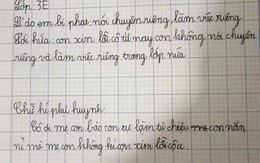 Lớp: 3E
Lí do em bị phạt: nói chuyện riêng, làm việc riêng
Lời hứa: con xin lỗi cô từ nay con không nói chuyện
riêng và làm việc riêng trong lớp nữa
Chữ kí phụ huynh
Cô ơi mẹ con bảo con tự làm tự chiệu mẹ con nắn
nỉ mà mẹ con không kí con xin lỗi cô ạ.